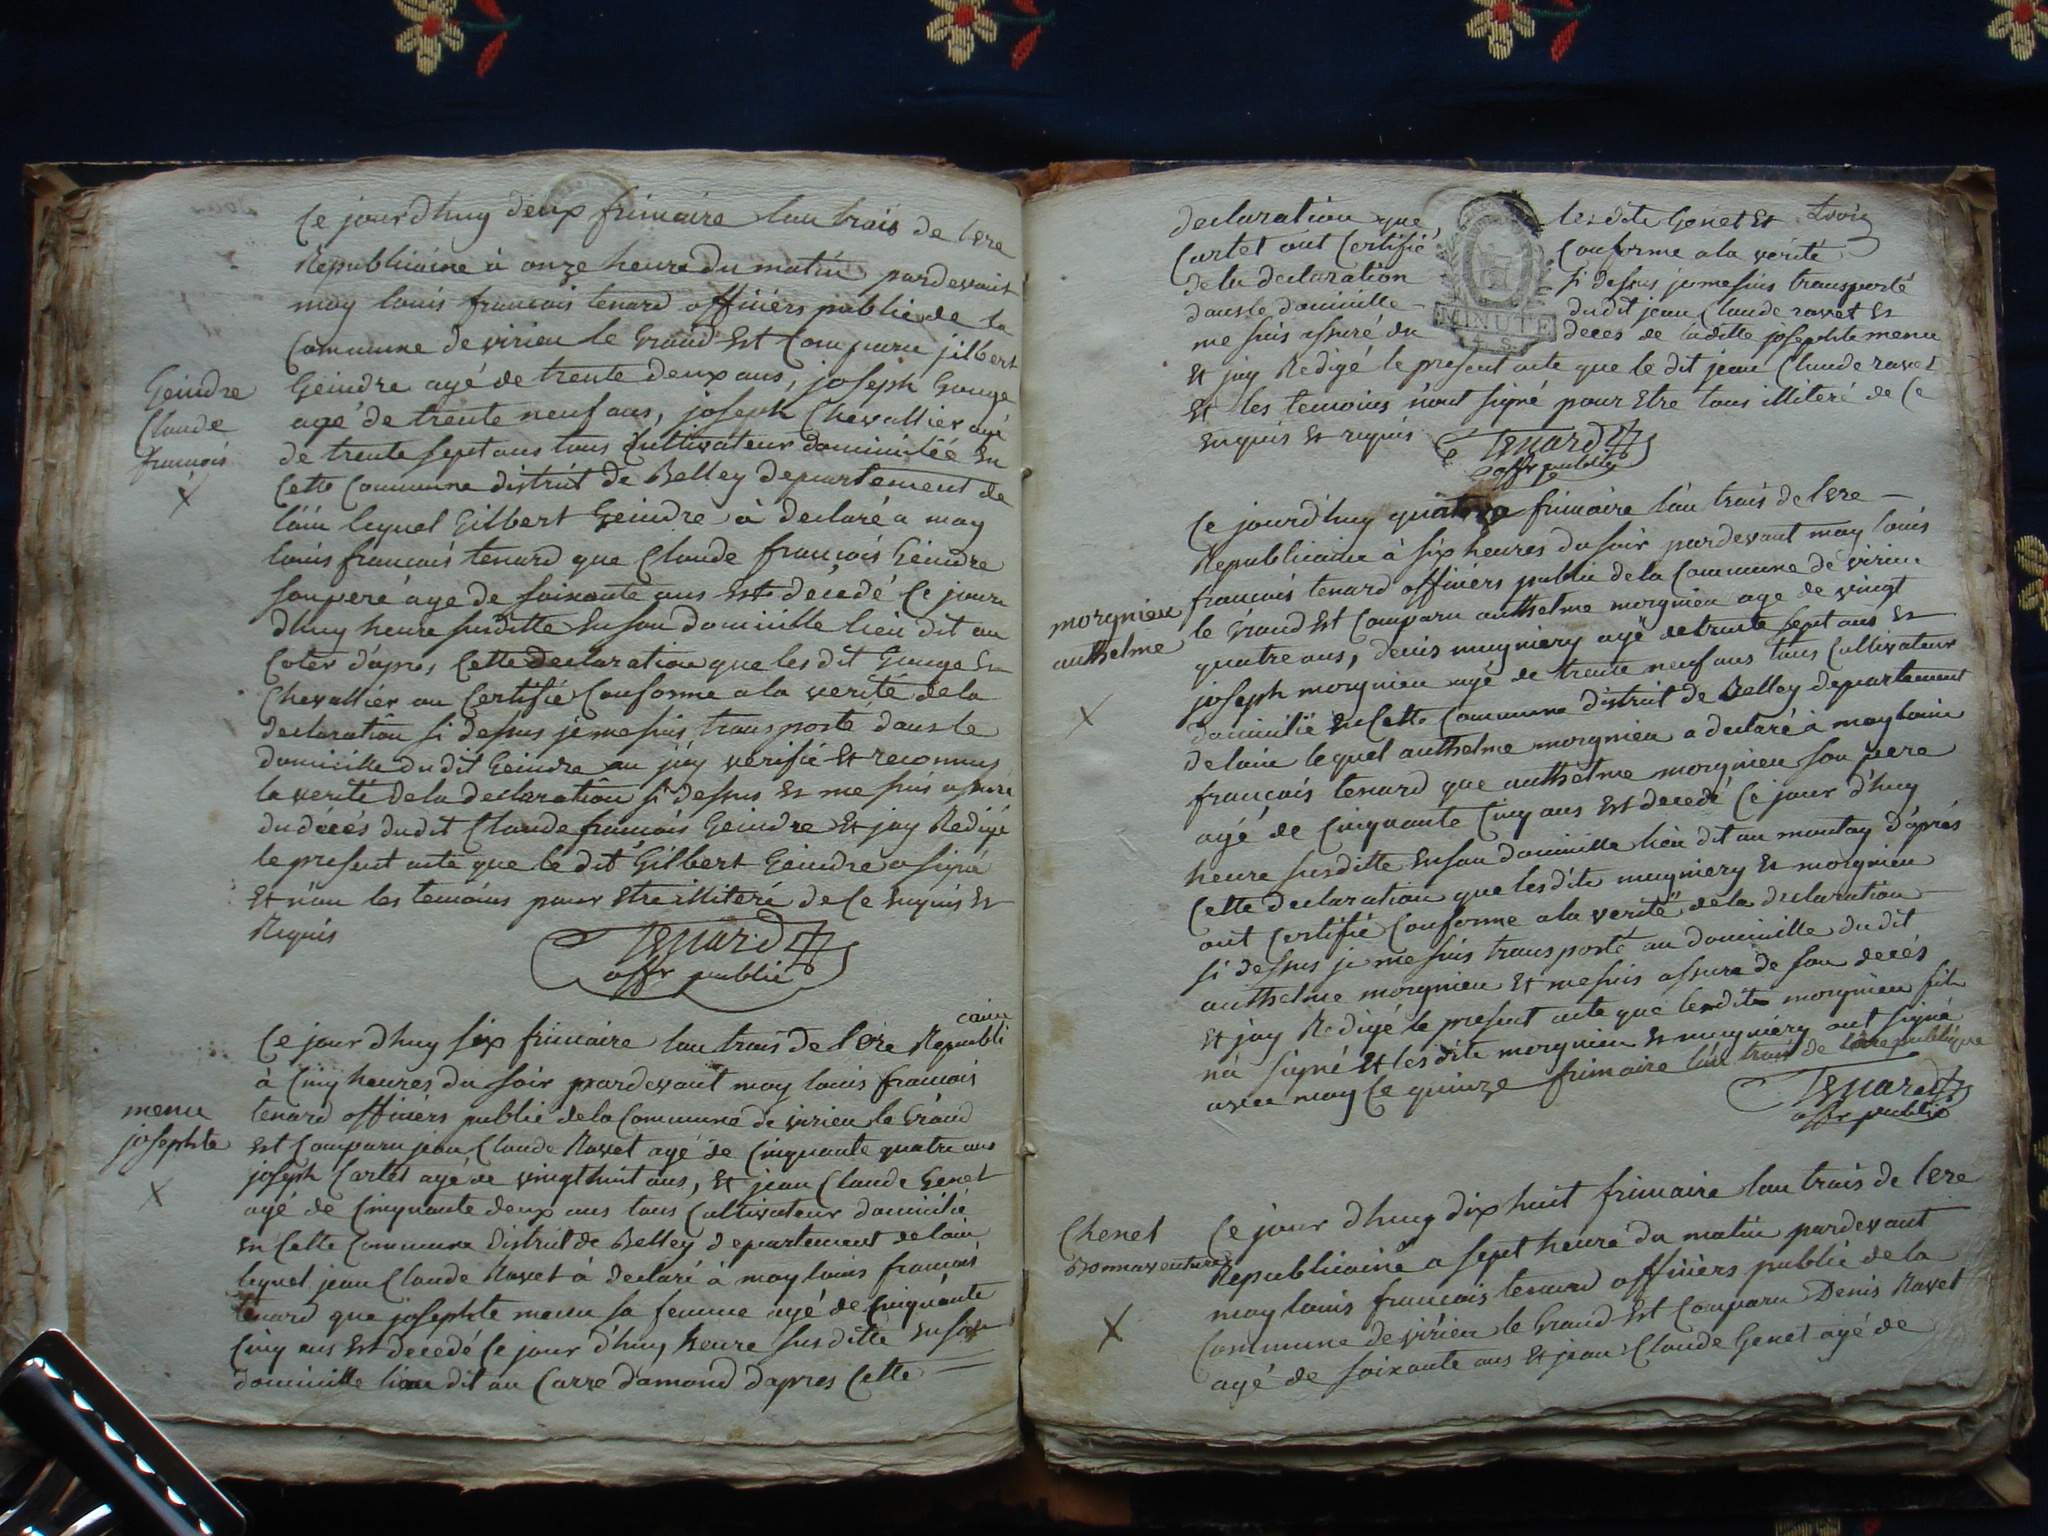 Ce jourd'huy deux frimaire lan trois de lere
Republicaine à onze heure du matin pardevant
moy louis francois tenard officiers public de la
Commune de virieu le Grand Est Comparu jilbert
Geindre agé de trente deux ans, joseph Gouge
agé de trente neuf ans, joseph Chevallier agé
de trente sept ans tous Cultivateur domicilié En
Cette Commune district de Belley departement de
l'ain lequel Gilbert Geindre à declaré a moy
louis francois tenard que Claude françois Geindre
son pere âge de soixante ans Est décedé Ce jour
dhuy heure susditte En son domicille lieu dit au
Coter d'apres Cette declaration que les dit Gouge Et
Chevallier on Certifié Conforme a la verité de la
declaration si dessus je me suis transporté dans le
domicille du dit Geindre ou j'ay verifié Et reconnus
la verité de la declaration si dessus Et me suis assuré
du décés dudit Claude francois Geindre Et jay Redigé
le present acte que le dit Gilbert Geindre a signé
Et non les temoins pour Etre illiteré de Ce Enquis Et
Requis
Tenard
offr public
Geindre
Claude
francois
X
Ce jour dhuy six frimaire lan trois de l'ere Republi
caine
à Cinq heures du soir pardevant moy louis francois
tenard officiers public de la Commune de virieu le Grand
Est Comparu jean Claude Ravet agé de Cinquante quatre ans
joseph Cartet agé de vingt huit ans, Et jean Claude Genet
agé de Cinquante deux ans tous Cultivateur domicilié
En Cette Commune district de Belley departement de lain
lequel jean Claude Ravet à declaré à moy louis francois
tenard que josephte menu sa femme agé de Cinquante
Cinq ans Est decedé Ce jour d'huy heure susditte En son
domicille lieu dit au Carre damond dapres Cette
menu
josephte
X
declaration que les dits Genet Et
Cartet ont Certifié Conforme a la verité
de la declaration si dessus je me suis transporté
dans le domicille du dit jean Claude ravet Et
me suis assuré du deces de laditte josephte menu
Et jay Redigé le present acte que le dit jean Claude ravet
Et les temoins n'ont signé pour Etre tous illiteré de Ce
Enquis Et requis
Tenard
offr public
MINUTE
Ce jourd'huy quatorze frimaire l'an trois de l'ere
Republicaine à six heures du soir pardevant moy louis
francois tenard officiers public de la Commune de virieu
le Grand Est Comparu anthelme morgnieu age de vingt
quatre ans, denis mugniery agé de trente sept ans Et
joseph morgnieu agé de trente neuf ans tous Cultivateur
domicilié En Cette Commune district de Belley departement
de lain lequel anthelme morgnieu a declaré à moy louis
francois tenard que anthelme morgnieu son pere
agé de Cinquante Cinq ans Est decedé Ce jour d'huy
heure susditte En son domicille lieu dit au montay d'aprés
Cette declaration que les dits mugniery Et morgnieu
ont Certifié Conforme a la verité de la declaration
si dessus je me suis transporté au domicille dudit
anthelme morgnieu Et me suis assuré de son decés
Et jay Redigé le present acte que le dit morgnieu fils
n'a signé Et les dits morgnieu Et mugniery ont signé
avec moy Ce quinze frimaire l'an trois de l'ere republique
Tenard
offr public
morgnieu
anthelme
X
Ce jour dhuy dix huit frimaire lan trois de lere
Republicaine a sept heure du matin pardevant
moy louis francois tenard officiers public de la
Commune de virieu le Grand Est Comparu Denis Ravet
agé de soixante ans Et jean Claude Genet agé de
Chenet
Bonnaventure
X